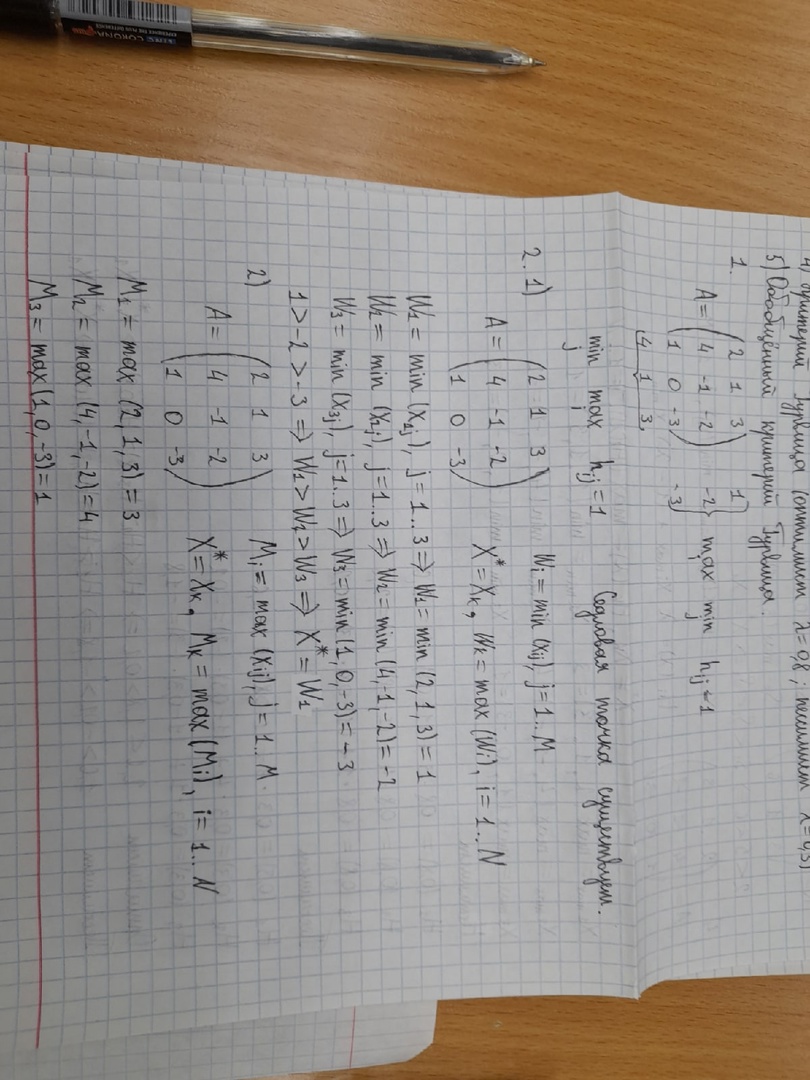 КРИТЕРИЙ Гурвица (оптимист λ=0,8; пессимист λ=0,3)
5) Обобщённый критерий Гурвица.
1.
2 1 3 1
A = 4 -1 -2 -2 max min hij = 1
j
1 0 -3 -3
4 1 3
min max hij = 1 Седловая точка существует.
j i
2. 1)
2 1 3 Wi = min (xij), j = 1...M
A = 4 -1 -2
1 0 -3 X* = Xk, Wk = max (Wi), i = 1...N
W1 = min (x1j), j = 1...3 ⇒ W1 = min (2, 1, 3) = 1
W2 = min (x2j), j = 1..3 ⇒ W2 = min (4, -1, -2) = -2
W3 = min (x3j), j = 1..3 ⇒ W3 = min (1, 0, -3) = -3
1 > -2 > -3 ⇒ W1 > W2 > W3 ⇒ X* = W1
2)
2 1 3 Mi = max (xij), j = 1..M
A = 4 -1 -2
1 0 -3 X* = Xk, Mk = max (Mi), i = 1...N
M1 = max (2, 1, 3) = 3
M2 = max (4, -1, -2) = 4
M3 = max (1, 0, -3) = 1
CORONA